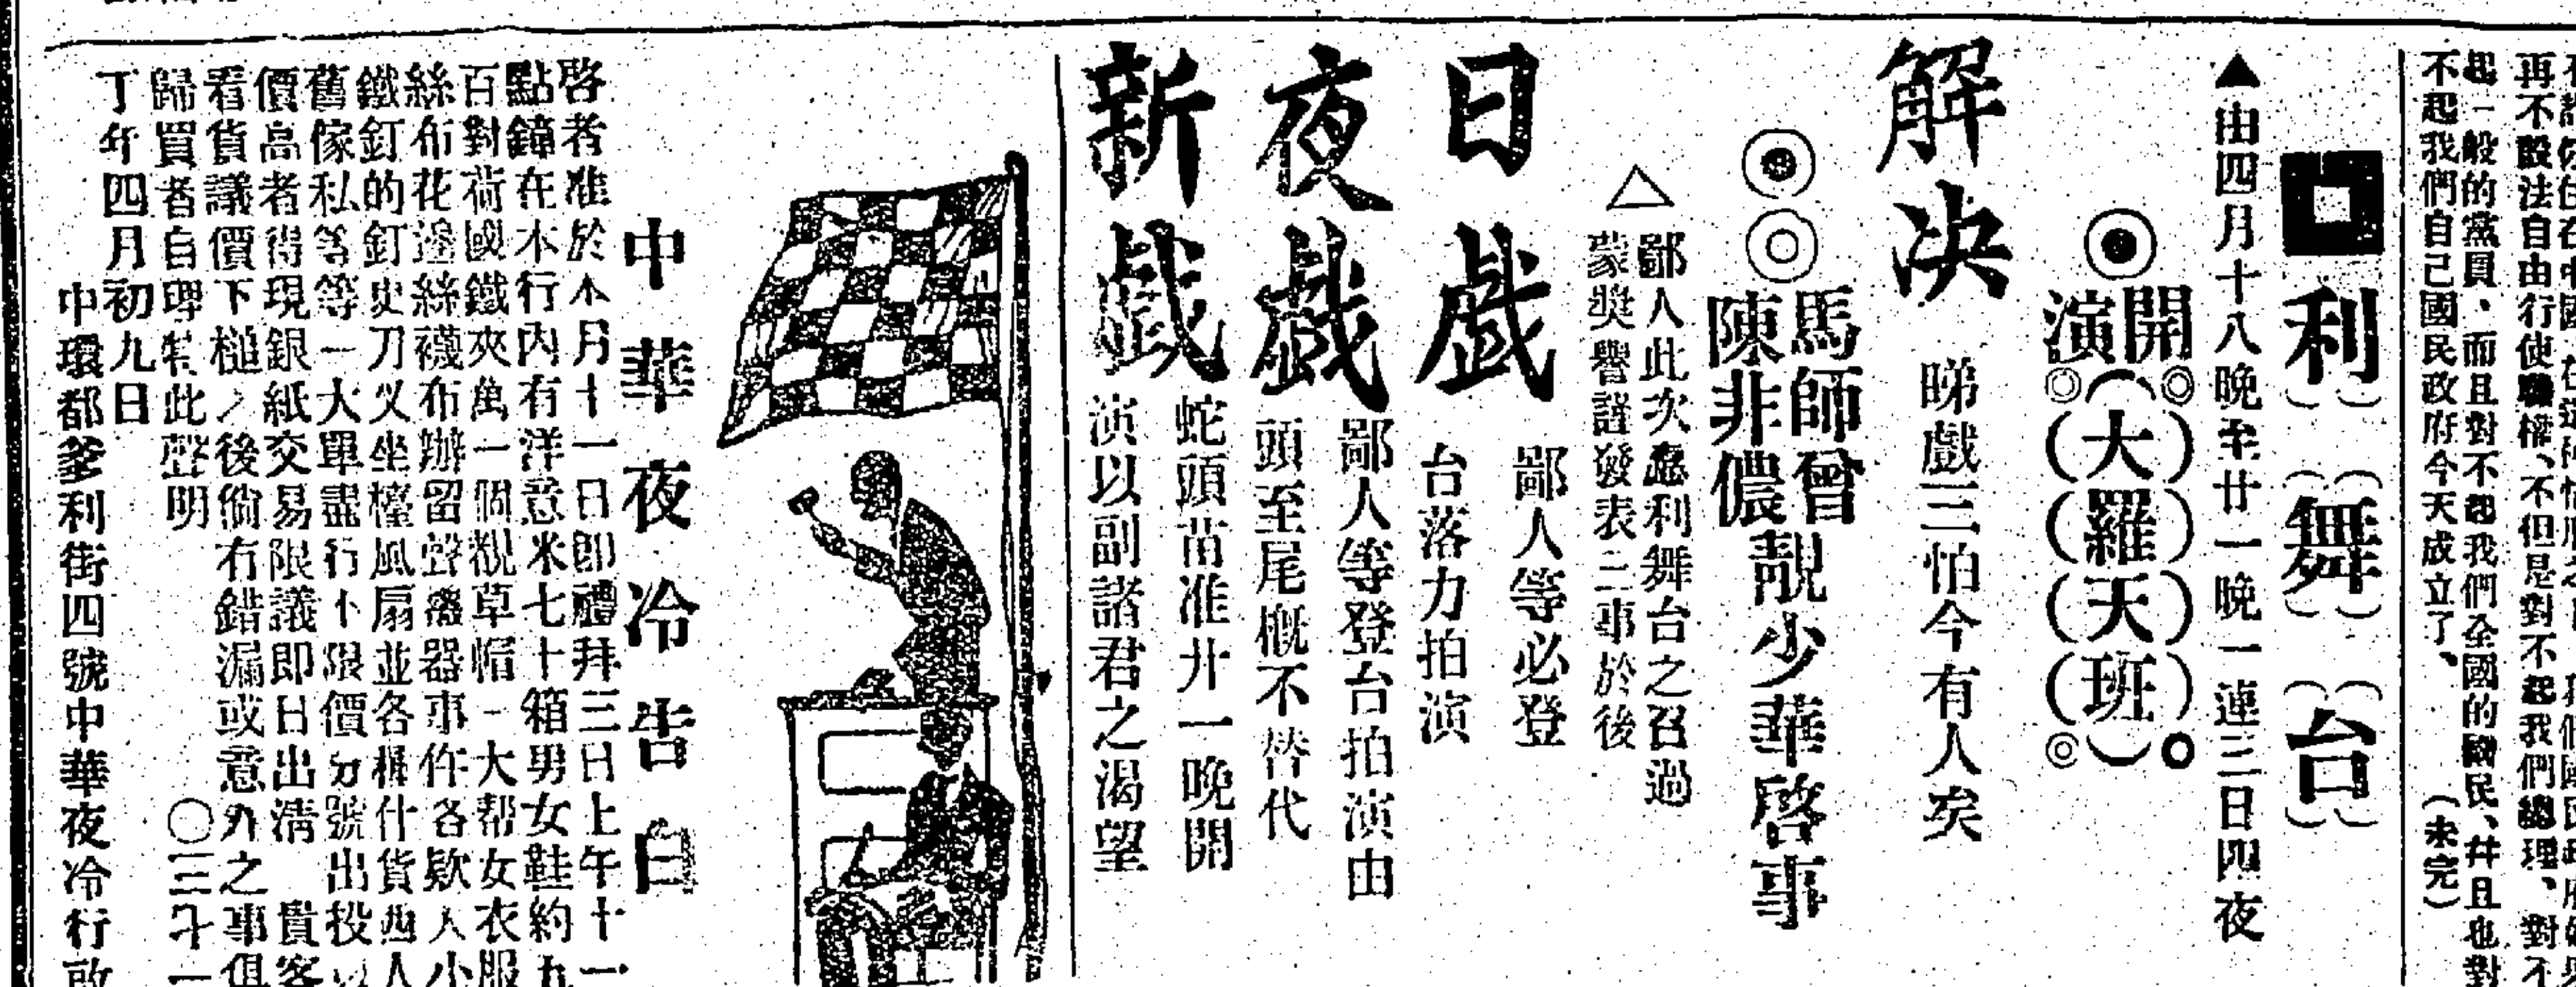 再不設法自由行使職權、不但是對不起我們總理、對不
起一般的黨員、而且對不起我們全國的國民、幷且也對
不起我們自己國民政府今天成立了、（未完）
利舞台
▲由四月十八晚至廿一晚一連三日四夜
開演（大羅天班）
解決 睇戲三怕今有人矣
◉◎馬師曾陳非儂靚少華啓事
△鄙人此次應利舞台之召過
蒙奬譽謹發表三事於後
日戲 鄙人等必登
台落力拍演
夜戲 鄙人等登台拍演由
頭至尾概不替代
新戲 蛇頭苗准廾一晚開
演以副諸君之渴望
中華夜冷告白
啓者准於本月十一日卽禮拜三日上午十一
點鐘在本行內有洋薏米七十箱男女鞋約九
百對荷國鐵夾萬一個靚草帽一大帮女衣服
絲布花邊絲襪布辦留聲機器事件各欵人小
鐵釘的釘史刀义坐檯風扇並各樣什貨西人
舊傢私等等一大單盡行不限價分號出投以
價高者得現銀紙交易限議即日出淸 貴客
看貨議價下槌之後倘有錯漏或意外之事俱
歸買者自理特此聲明 〇三斗一
丁年四月初九日
中環都爹利街四號中華夜冷行啟